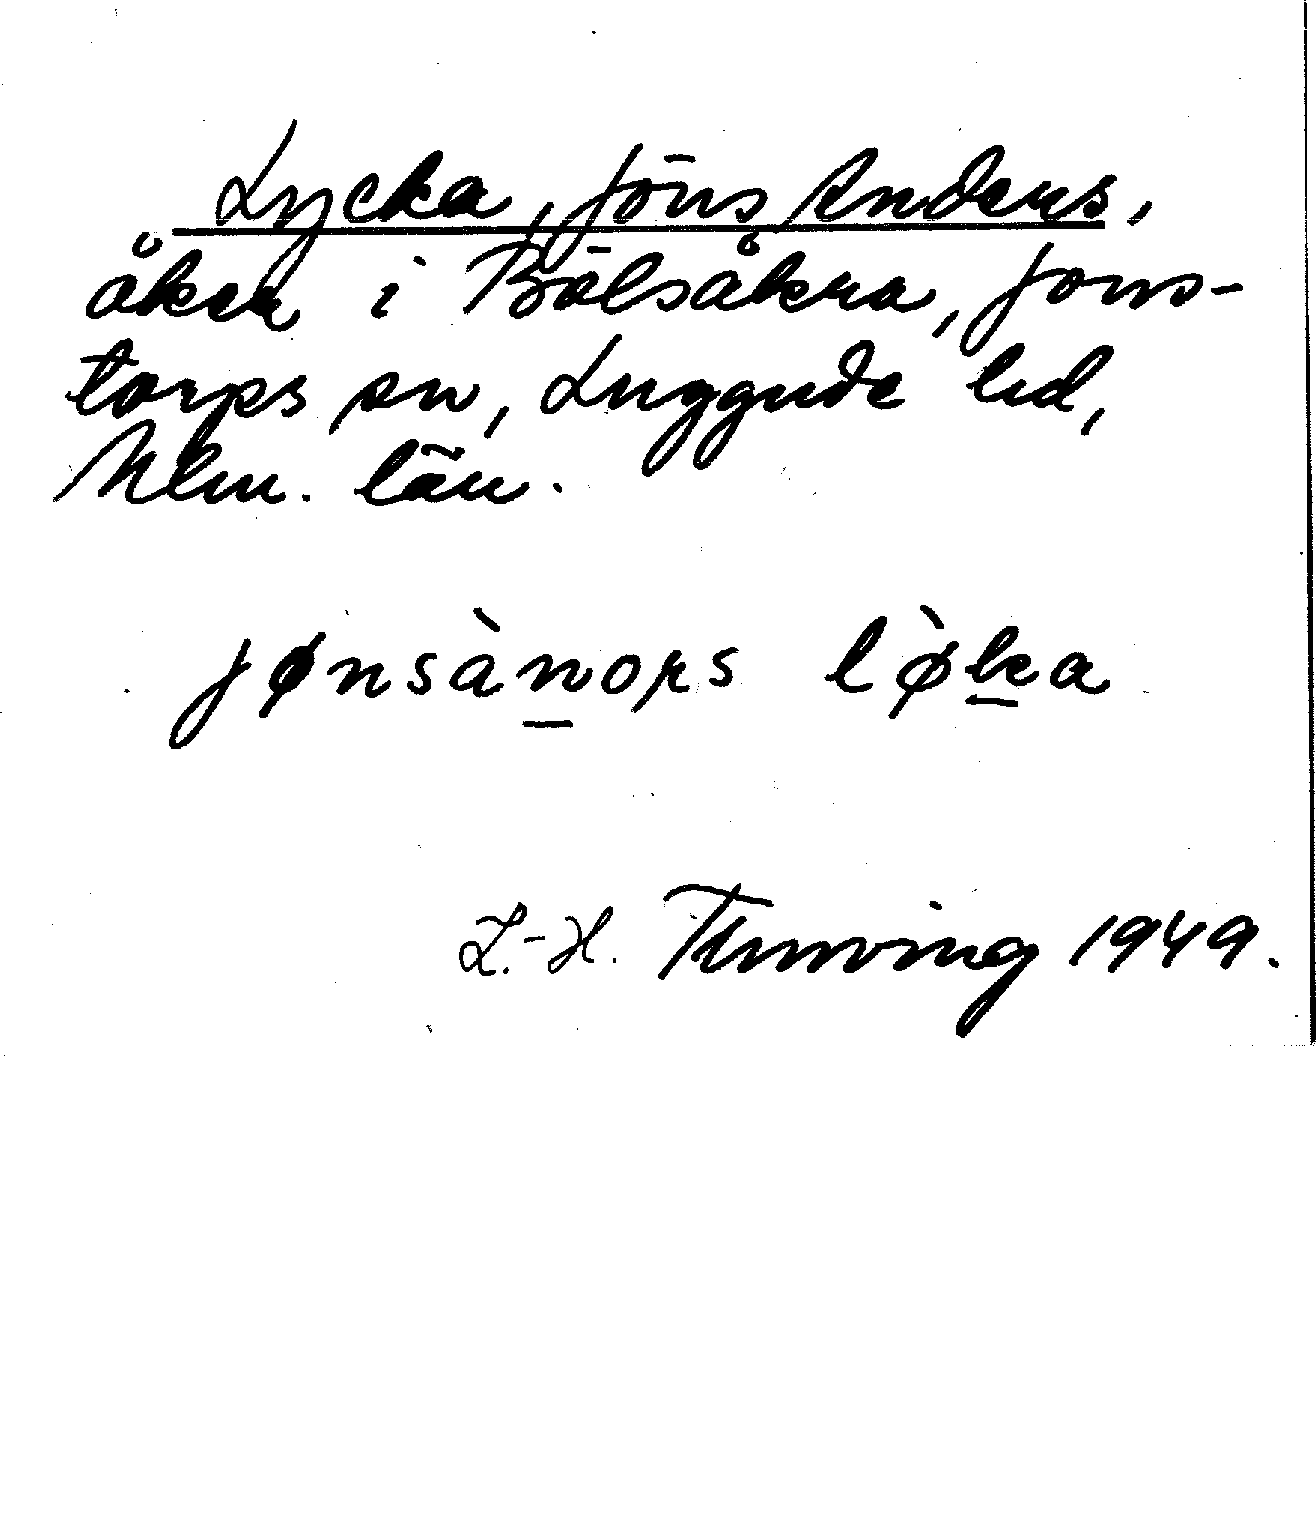 Lycka, Jöns Anders,
åker i Bölsåkra, Jons-
torps sn, Luggude hd,
Mlm. län.
jønsànors lø̀ka
L.-H. Thunving 1949.